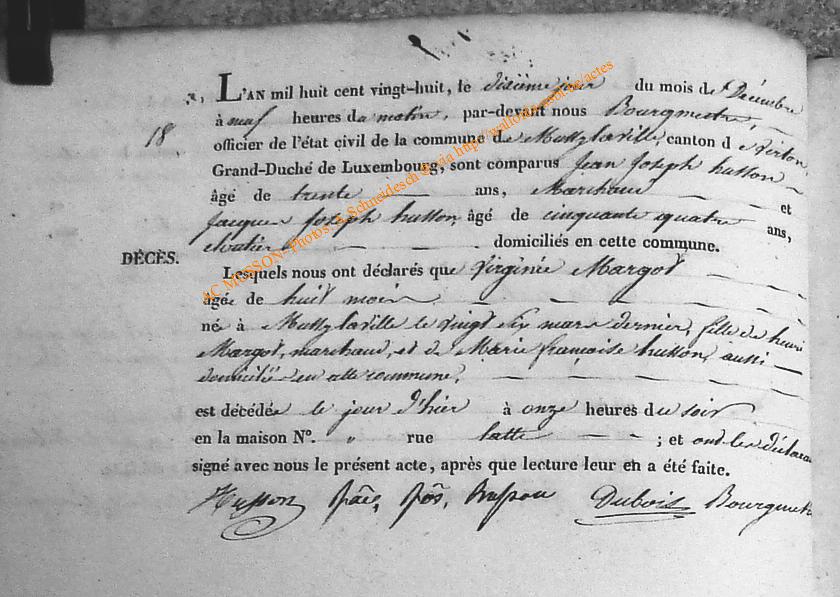 L'AN mil huit cent vingt-huit, le dixième jour du mois de Décembre
18 à neuf heures du matin, par-devant nous Bourgmestre,
officier de l'état civil de la commune de Mussylaville, canton d e virton,
Grand-Duché de Luxembourg, sont comparus Jean Joseph husson
âgé de trente ans, Marchand et
Jacques Joseph husson, âgé de cinquante quatre ans,
domiciliés en cette commune.
DÉCÈS.
Lesquels nous ont déclarés que virginie Margot
agée de huit mois
né à Mussylaville le vingt six mars dernier, fille de henri
Margot, marchand, et de Marie françoise husson, aussi
domiciliés en cette commune,
est décédée le jour d'hier à onze heures du soir
en la maison N°. " rue latte ; et ont les déclarans
signé avec nous le présent acte, après que lecture leur en a été faite.
Husson Dubois Bourgmest
AC MUSSON - Photos Schneidesch via http://wallonia-asbl.be/actes